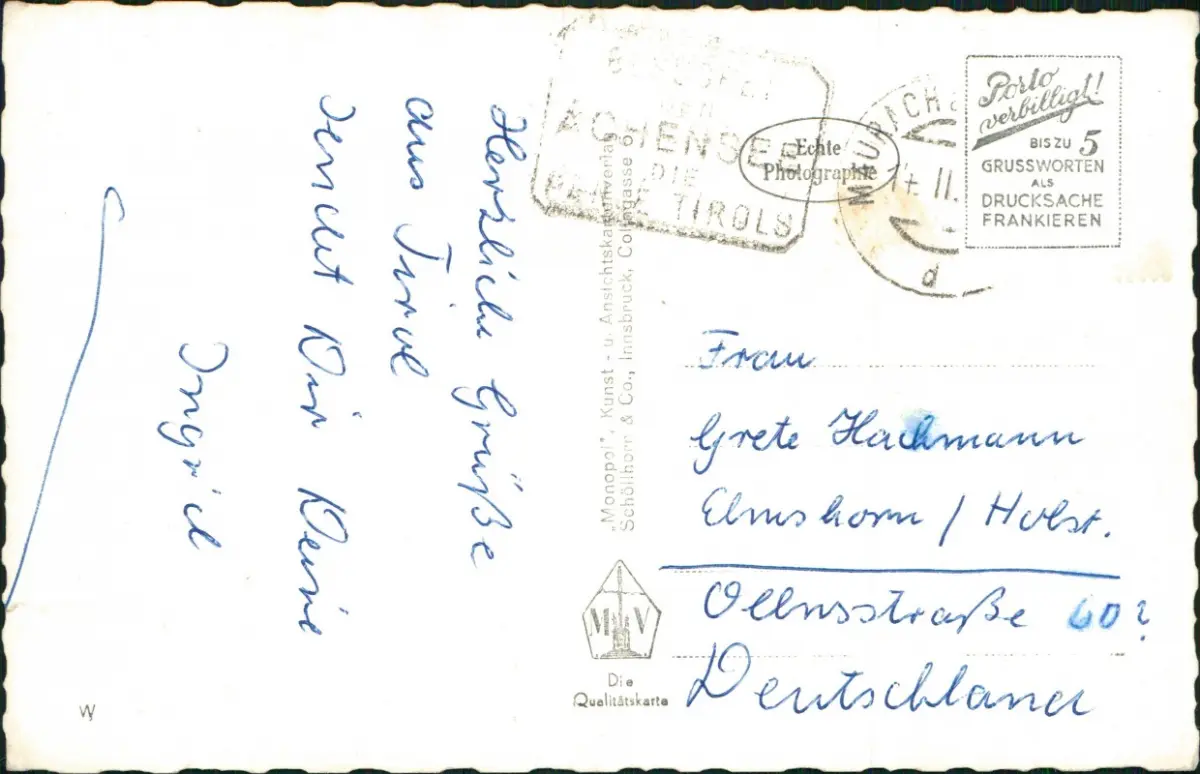 Herzliche Grüße
aus Tirol
sendet Dir Deine
Ingrid
ACHENSEE
DIE
PERLE TIROLS
Echte
Photographie
MAURACH
14. II.
d
Porto
verbilligt!
BIS ZU 5
GRUSSWORTEN
ALS
DRUCKSACHE
FRANKIEREN
"Monopol", Kunst- u. Ansichtskartenverlag
Schöllhorn & Co., Innsbruck, Collingasse 6
Frau
Grete Hachmann
Elmshorn / Holst.
Ollnsstraße 60?
Deutschland
M V
Die
Qualitätskarte
W